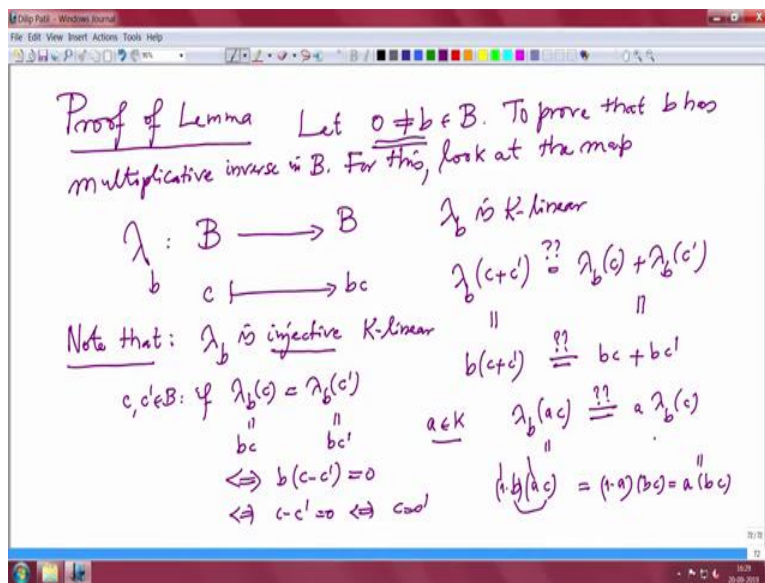 Dilip Patil - Windows Journal
File Edit View Insert Actions Tools Help
Proof of Lemma Let 0 ≠ b ∈ B. To prove that b has
multiplicative inverse in B. For this, look at the map
λ_b : B ⟶ B
c ⟼ bc
Note that: λ_b is injective K-linear
c, c' ∈ B: if λ_b(c) = λ_b(c')
|| ||
bc bc'
⟺ b(c-c') = 0
⟺ c-c' = 0 ⟺ c=c'
λ_b is K-linear
λ_b(c+c') ??= λ_b(c) + λ_b(c')
|| ||
b(c+c') ??= bc + bc'
a ∈ K λ_b(ac) ??= a λ_b(c)
|| ||
(1·b)(ac) = (1·a)(bc) = a(bc)
72/72
72
16:29
20-09-2019